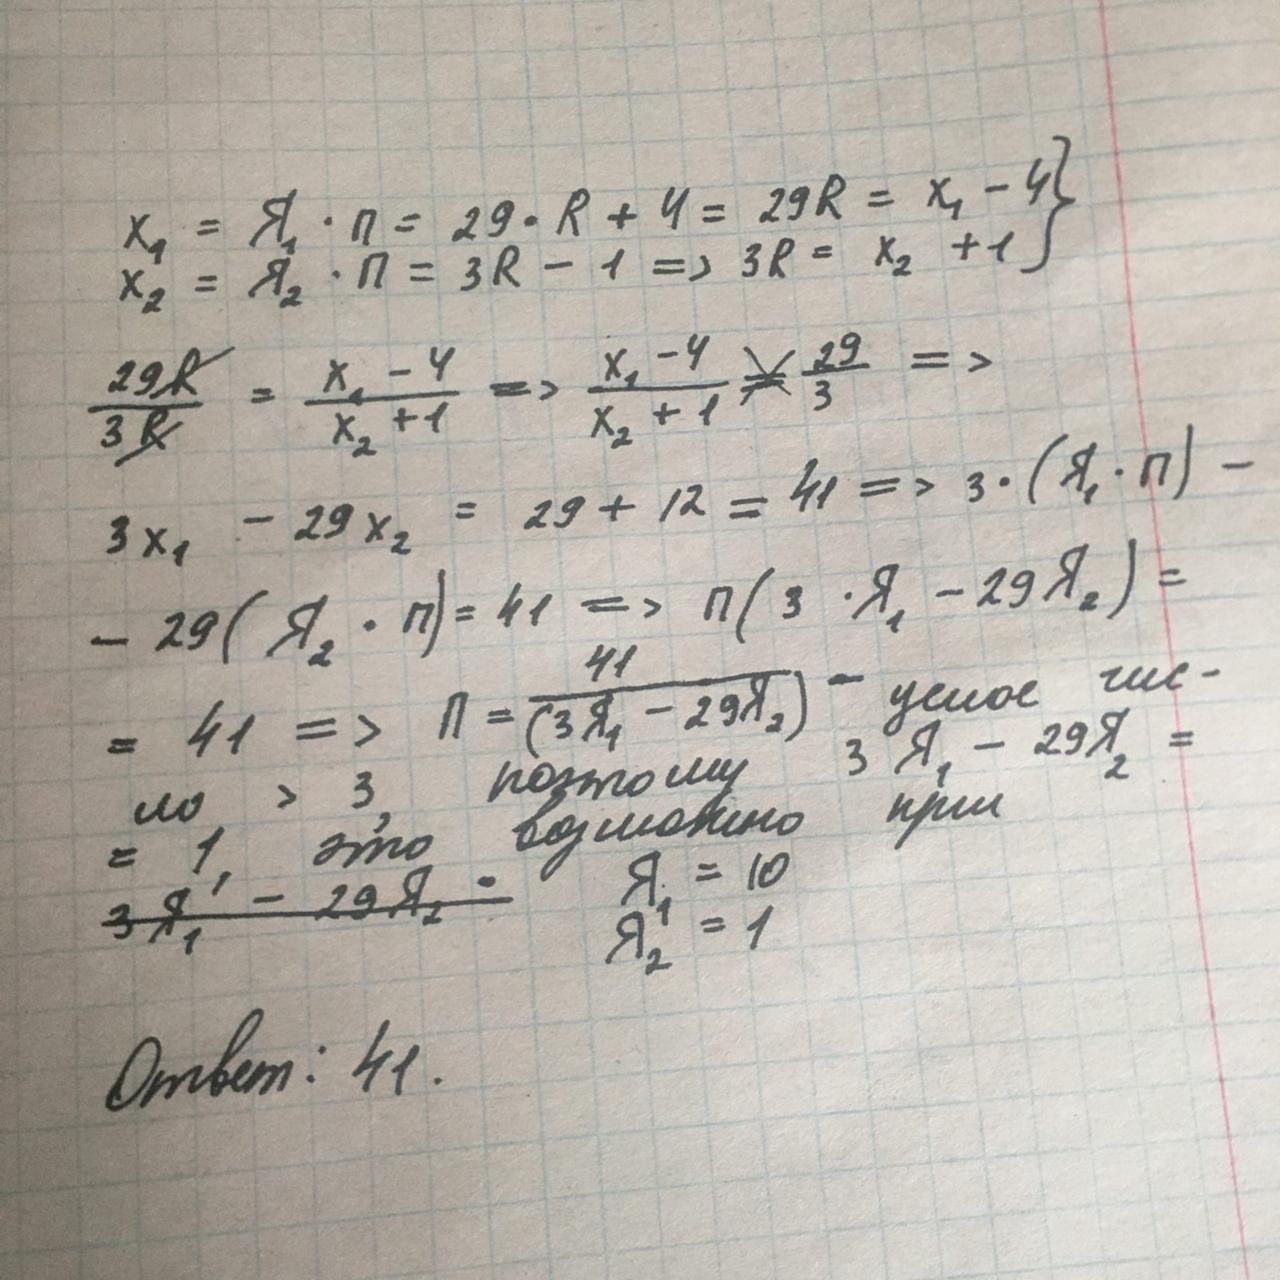 x₁ = Я₁ · п = 29 · R + 4 = 29R = x₁ - 4}
x₂ = Я₂ · П = 3R - 1 => 3R = x₂ + 1}
29R/3R = (x₁ - 4)/(x₂ + 1) => (x₁ - 4)/(x₂ + 1) = 29/3 =>
3x₁ - 29x₂ = 29 + 12 = 41 => 3 · (Я₁ · п) -
- 29(Я₂ · п) = 41 => п(3 · Я₁ - 29Я₂) =
= 41 => П = 41/(3Я₁ - 29Я₂) - целое чис-
ло > 3, поэтому 3Я₁ - 29Я₂ =
= 1, это возможно при
3Я₁ - 29Я₂ = Я₁ = 10
Я₂ = 1
Ответ: 41.